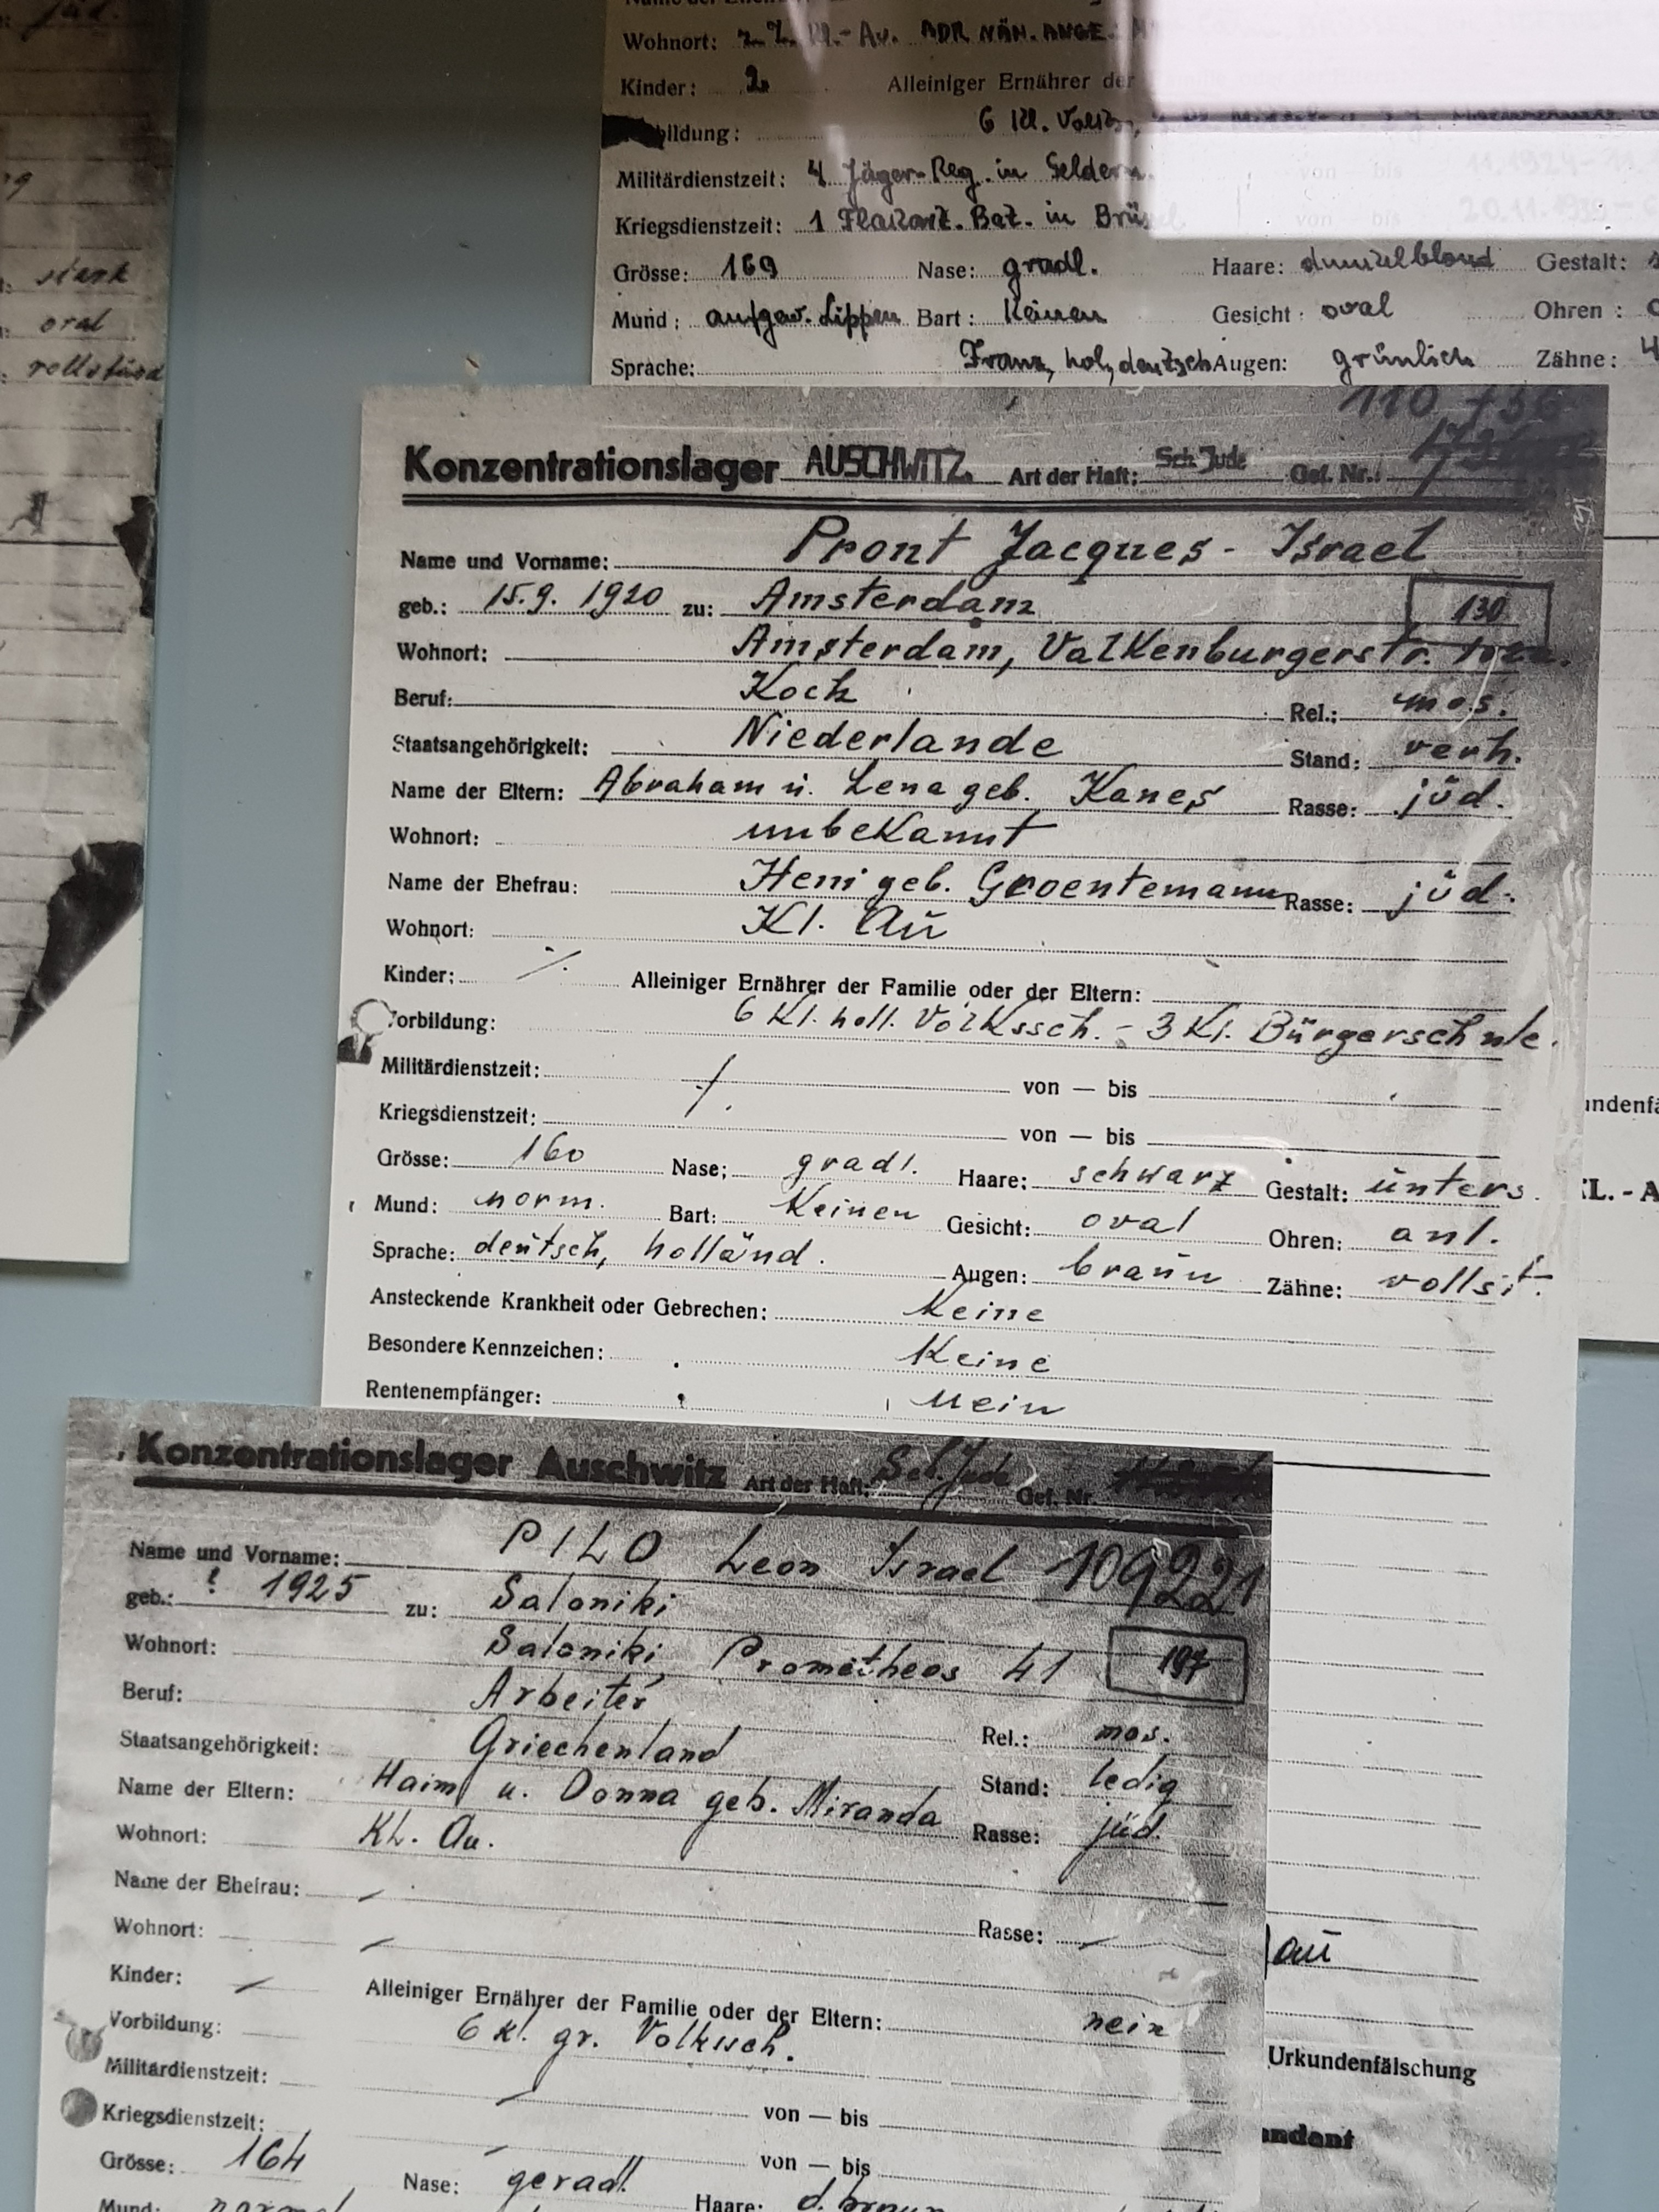 jüd.
stark
oval
Wohnort: ADR NÄN. ANGE.
Kinder: 2 Alleiniger Ernährer der
bildung: 6 Kl. Volks
Militärdienstzeit: 4 Jäger-Reg. in Geldern. von — bis 11.1924-11.
Kriegsdienstzeit: 1 in Brüs von — bis 20.11.1939-
Grösse: 169 Nase: gradl. Haare: dunkelblond Gestalt:
Mund: aufgew. Lippen Bart: Keinen Gesicht: oval Ohren:
Sprache: Franz, hol, deutsch Augen: grünlich Zähne:
110 736
Konzentrationslager AUSCHWITZ. Art der Haft: Sch. Jude Gef. Nr.:
Name und Vorname: Pront Jacques - Israel
geb.: 15.9. 1920 zu: Amsterdam
130
Wohnort: Amsterdam, Valkenburgerstr.
Beruf: Koch Rel.: mos.
Staatsangehörigkeit: Niederlande Stand: verh.
Name der Eltern: Abraham u. Lena geb. Kanes Rasse: jüd.
Wohnort: unbekannt
Name der Ehefrau: Heni geb. Groentemann Rasse: jüd.
Wohnort: Kl. Au
Kinder: Alleiniger Ernährer der Familie oder der Eltern:
Vorbildung: 6 Kl. holl. Volkssch. - 3 Kl. Bürgerschule.
Militärdienstzeit: von — bis
Kriegsdienstzeit: von — bis
Grösse: 160 Nase: gradl. Haare: schwarz Gestalt: unters.
Mund: norm. Bart: Keinen Gesicht: oval Ohren: anl.
Sprache: deutsch, holländ. Augen: braun Zähne: vollst.
Ansteckende Krankheit oder Gebrechen: Keine
Besondere Kennzeichen: Keine
Rentenempfänger: nein
Konzentrationslager Auschwitz Art der Haft: Sch. Jude Gef. Nr.
Name und Vorname: PILO Leon Israel 109221
geb.: ? 1925 zu: Saloniki
Wohnort: Saloniki, Prometheos 41
197
Beruf: Arbeiter
Staatsangehörigkeit: Griechenland Rel.: mos.
Name der Eltern: Haim u. Donna geb. Miranda Stand: ledig
Wohnort: Kl. Au. Rasse: jüd.
Name der Ehefrau:
Wohnort: Rasse:
Kinder: Alleiniger Ernährer der Familie oder der Eltern: nein
Vorbildung: 6 kl. gr. Volkssch.
Militärdienstzeit: von — bis
Kriegsdienstzeit: von — bis
Grösse: 164 Nase: geradl. Haare: d. braun
Mund:
au
Urkundenfälschung